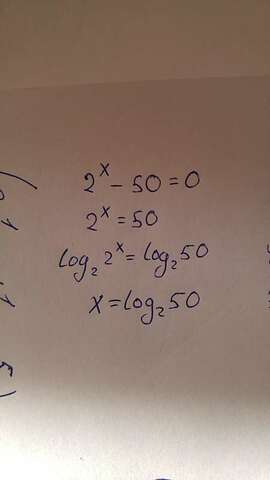 2ˣ - 50 = 0
2ˣ = 50
log₂ 2ˣ = log₂ 50
x = log₂ 50